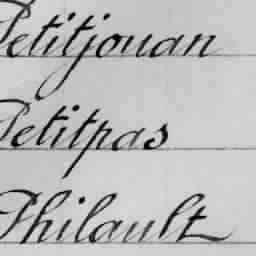 Petitjouan
Petitpas
Philault